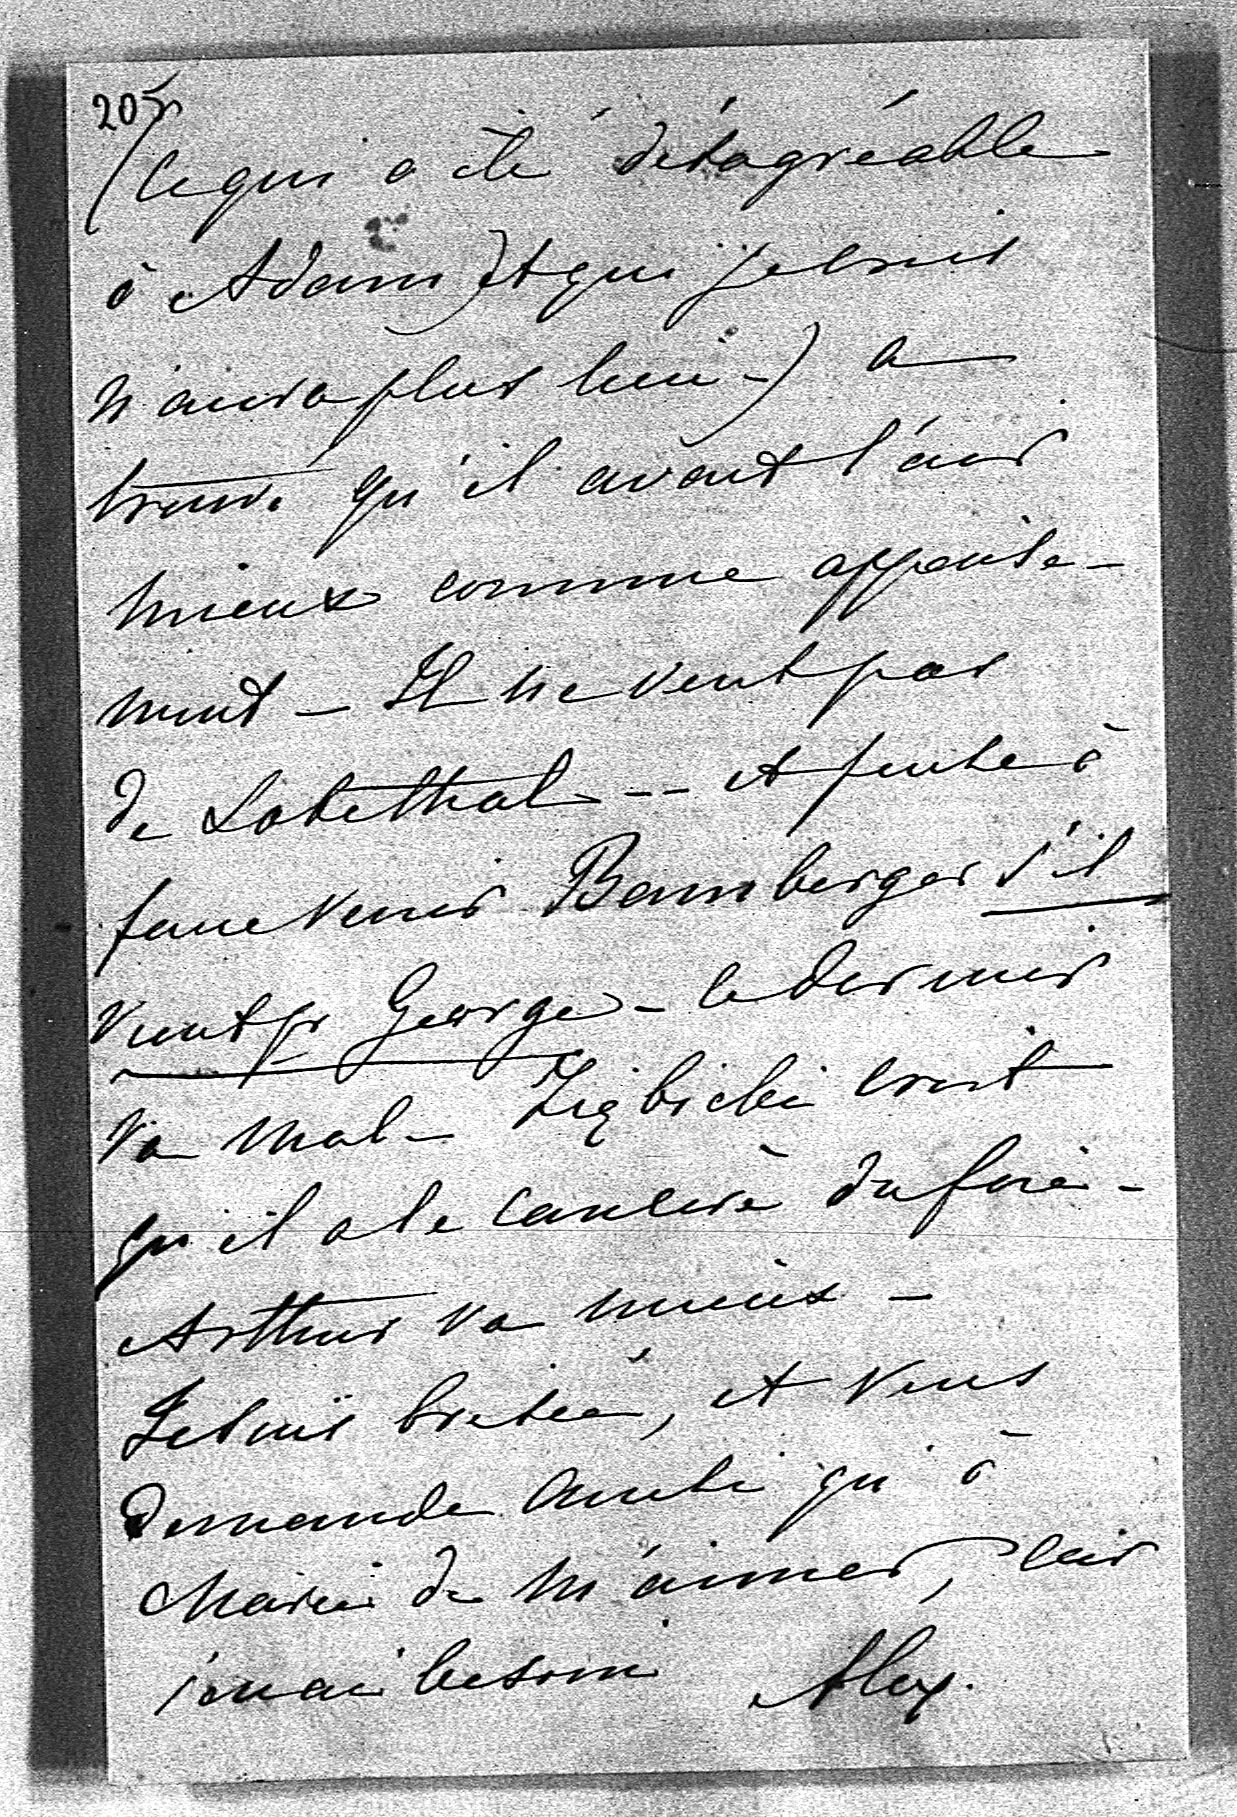 205
(ce qui a été désagréable
à Adam) et qui je crois
n'aura plus lieu -) a
trouvé qu'il avait l'air
mieux comme apparte-
ment - Il ne veut pas
de Lobethal -- et pense à
faire venir Bamberger s'il
vient pr George - ce dernier
va mal - croit
qu'il a le cancer du foie -
Arthur va mieux -
Je suis brisée, et vous
demande aussi qu'à
Marie de m'aimer, car
j'en ai besoin Alex.